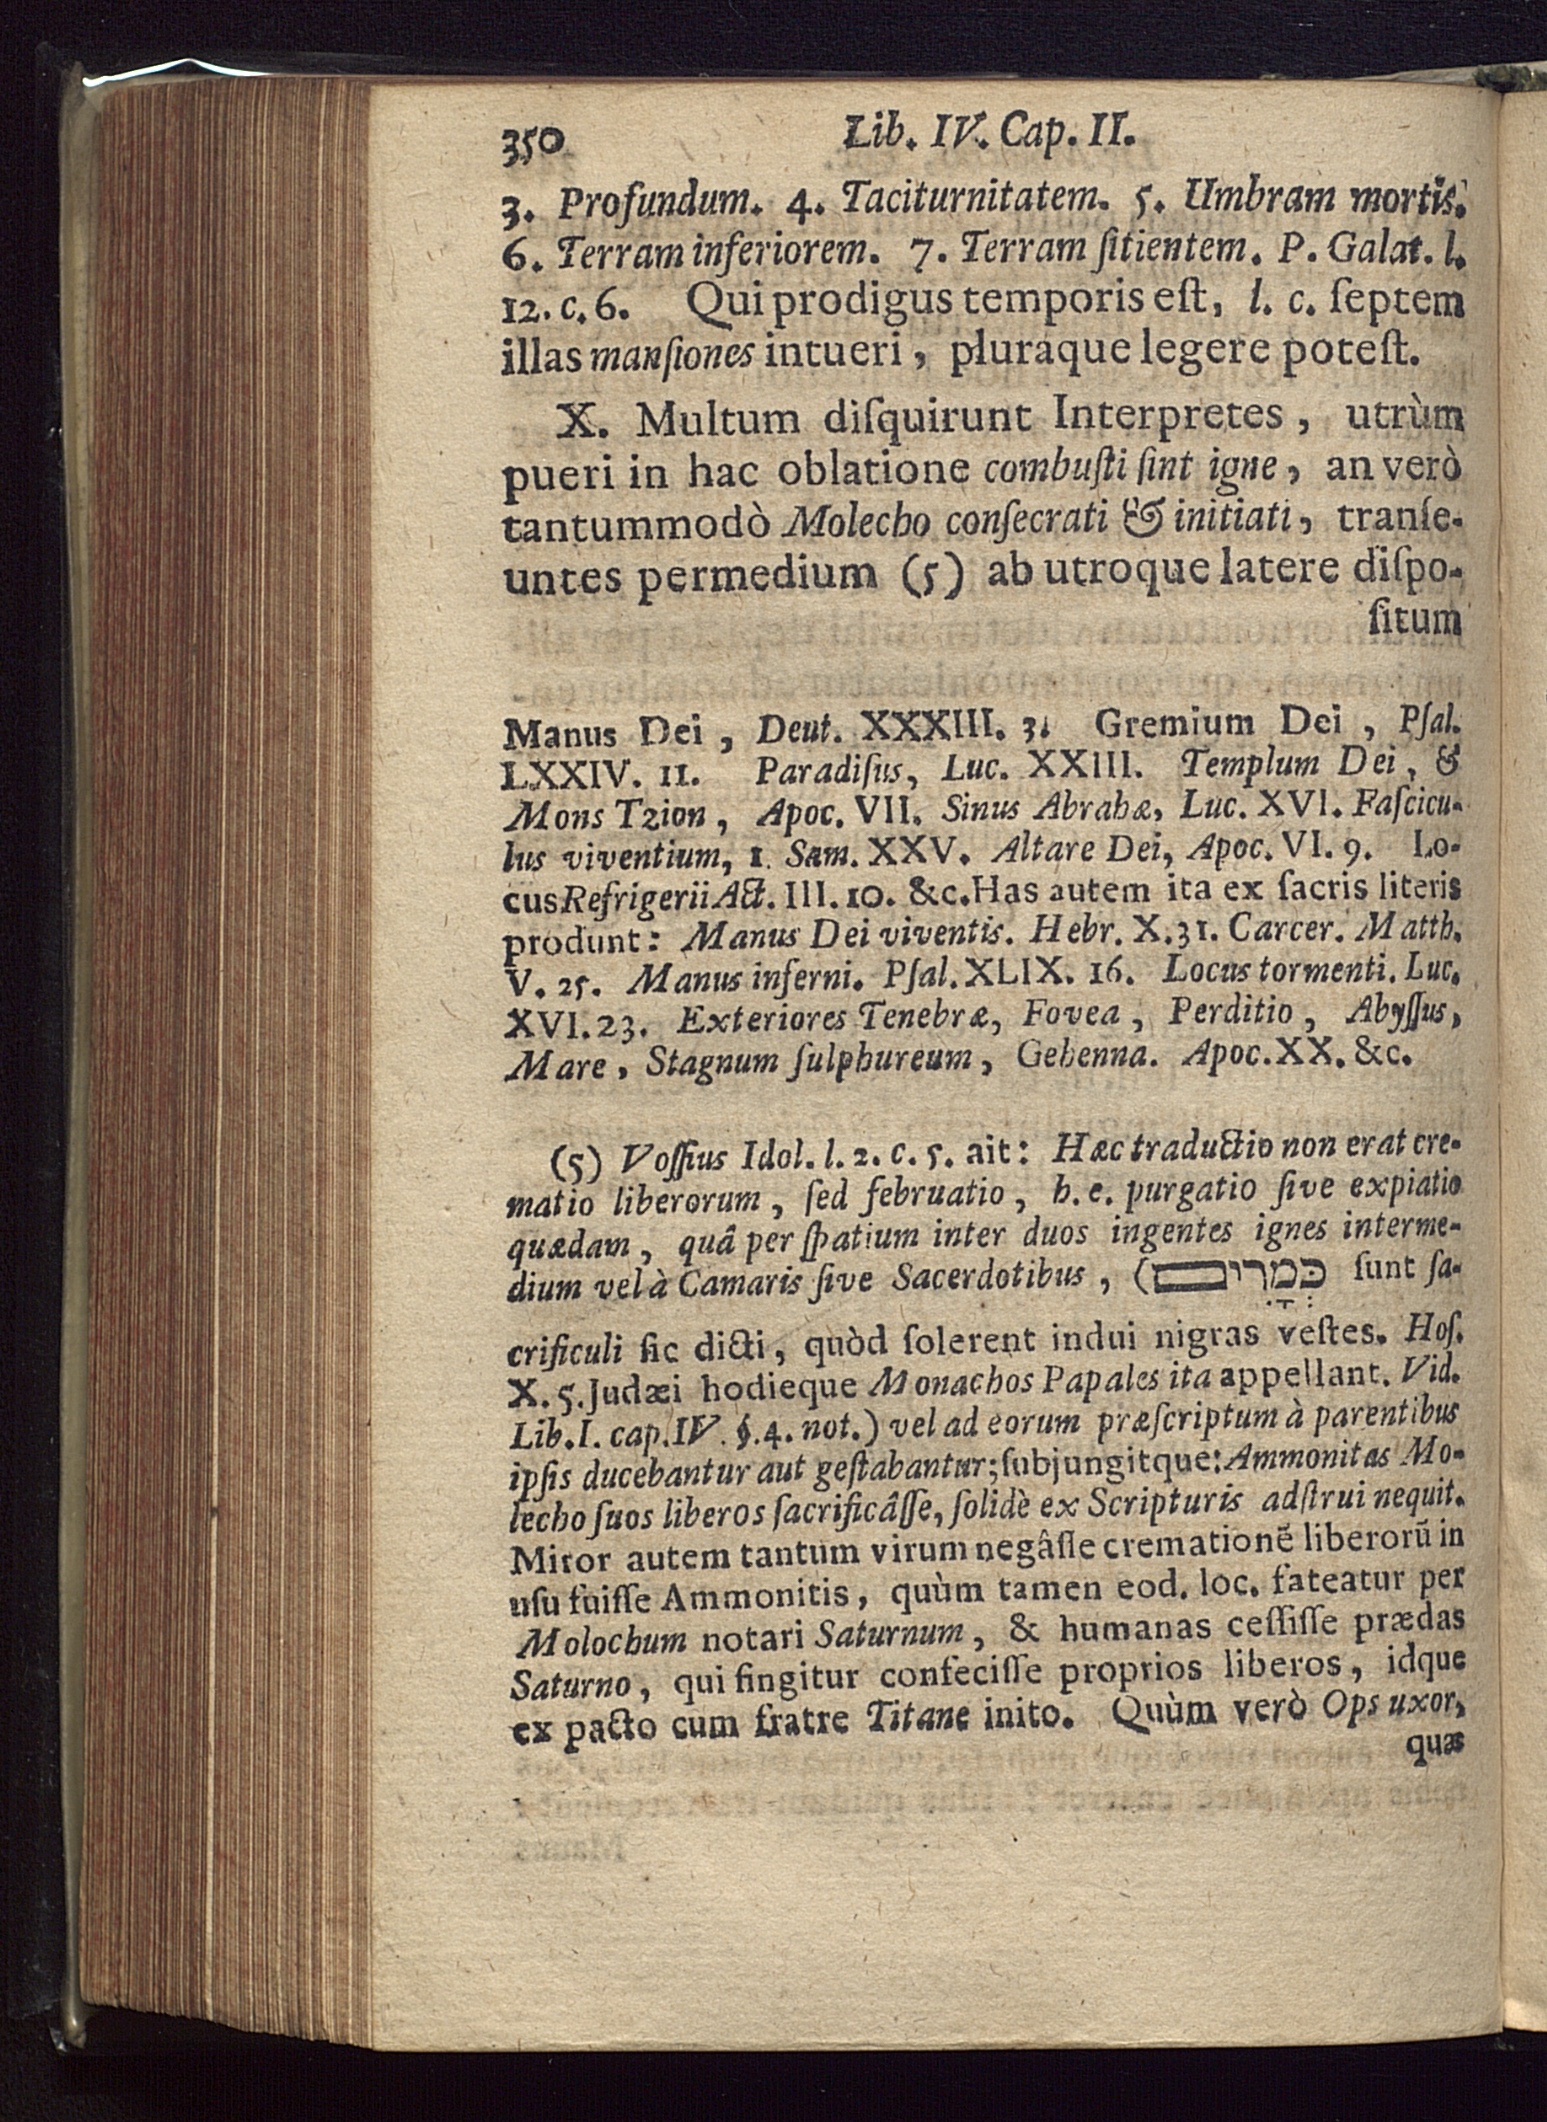 350 Lib. IV. Cap. II.
3. Profundum. 4. Taciturnitatem. 5. Umbram mortis.
6. Terram inferiorem. 7. Terram ſitientem. P. Galat. l.
12. c. 6. Qui prodigus temporis eſt, l. c. ſeptem
illas manſiones intueri, pluraque legere poteſt.
X. Multum diſquirunt Interpretes, utrùm
pueri in hac oblatione combuſti ſint igne, an verò
tantummodò Molecho conſecrati & initiati, tranſe-
untes permedium (5) ab utroque latere diſpo-
ſitum
Manus Dei, Deut. XXXIII. 3. Gremium Dei, Pſal.
LXXIV. 11. Paradiſus, Luc. XXIII. Templum Dei, &
Mons Tzion, Apoc. VII. Sinus Abrahæ, Luc. XVI. Faſcicu-
lus viventium, 1. Sam. XXV. Altare Dei, Apoc. VI. 9. Lo-
cus Refrigerii Act. III. 10. &c. Has autem ita ex ſacris literis
produnt: Manus Dei viventis. Hebr. X. 31. Carcer. Matth.
V. 25. Manus inferni. Pſal. XLIX. 16. Locus tormenti. Luc.
XVI. 23. Exteriores Tenebræ, Fovea, Perditio, Abyſſus,
Mare, Stagnum ſulphureum, Gehenna. Apoc. XX. &c.
(5) Voſſius Idol. l. 2. c. 5. ait: Hæc traductio non erat cre-
matio liberorum, ſed februatio, h. e. purgatio ſive expiatio
quædam, quâ per ſpatium inter duos ingentes ignes interme-
dium vel à Camaris ſive Sacerdotibus, (כְּמָרִים ſunt ſa-
crificuli ſic dicti, quòd ſolerent indui nigras veſtes. Hoſ.
X. 5. Judæi hodieque Monachos Papales ita appellant. Vid.
Lib. I. cap. IV. §. 4. not.) vel ad eorum præſcriptum à parentibus
ipſis ducebantur aut geſtabantur; ſubjungitque: Ammonitas Mo-
lecho ſuos liberos ſacrificâſſe, ſolidè ex Scripturis adſtrui nequit.
Miror autem tantum virum negâſſe crematione͂ liberorũ in
uſu fuiſſe Ammonitis, quùm tamen eod. loc. fateatur per
Molochum notari Saturnum, & humanas ceſſiſſe prædas
Saturno, qui fingitur confeciſſe proprios liberos, idque
ex pacto cum fratre Titane inito. Quùm verò Ops uxor,
quæ